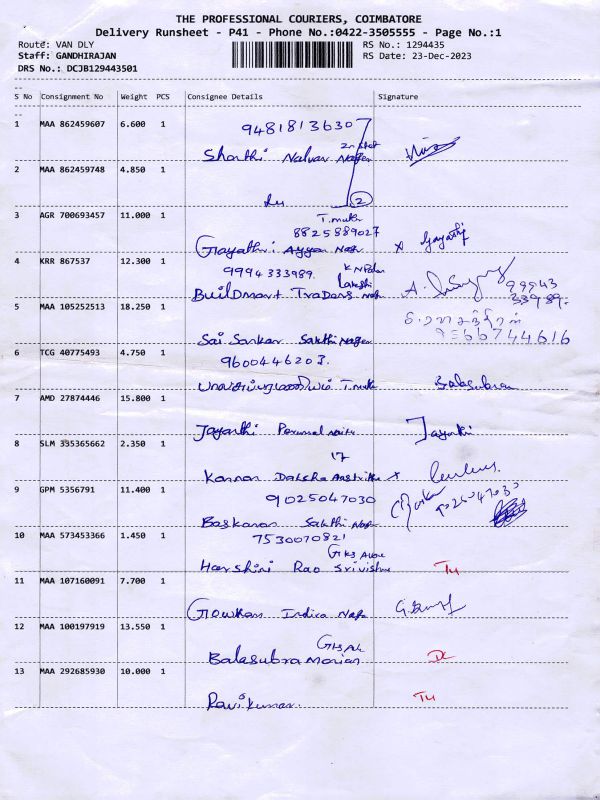 THE PROFESSIONAL COURIERS, COIMBATORE
Delivery Runsheet - P41 - Phone No.:0422-3505555 - Page No.:1
Route: VAN DLY RS No.: 1294435
Staff: GANDHIRAJAN RS Date: 23-Dec-2023
DRS No.: DCJB129443501
S No Consignment No Weight PCS Consignee Details Signature
1 MAA 862459607 6.600 1 9481813630
Shanthi Nalvar Nager
2 MAA 862459748 4.850 1
2
3 AGR 700693457 11.000 1 T.muth
8825889027
Gayathri Nagr x Gayathri
4 KRR 867537 12.300 1 9994333989 K N Palan
Lakshi
Buildmart Traders A. 99943
33989
5 MAA 105252513 18.250 1 9566744616
Sai Sankar Sakthi Nager
6 TCG 40775493 4.750 1 9600446203
T.muth Balasubra
7 AMD 27874446 15.800 1
Jayanthi Perumal Jayanthi
8 SLM 335365662 2.350 1 17
Kannan Daksha x
9 GPM 5356791 11.400 1 9025047030 9025047030
Baskaran Sakthi Nagr
10 MAA 573453366 1.450 1 7530070821
Harshini Rao Srivishnu
11 MAA 107160091 7.700 1
Gowtham Indira Nagr
12 MAA 100197919 13.550 1
Balasubramanian
13 MAA 292685930 10.000 1
Ravikumar.